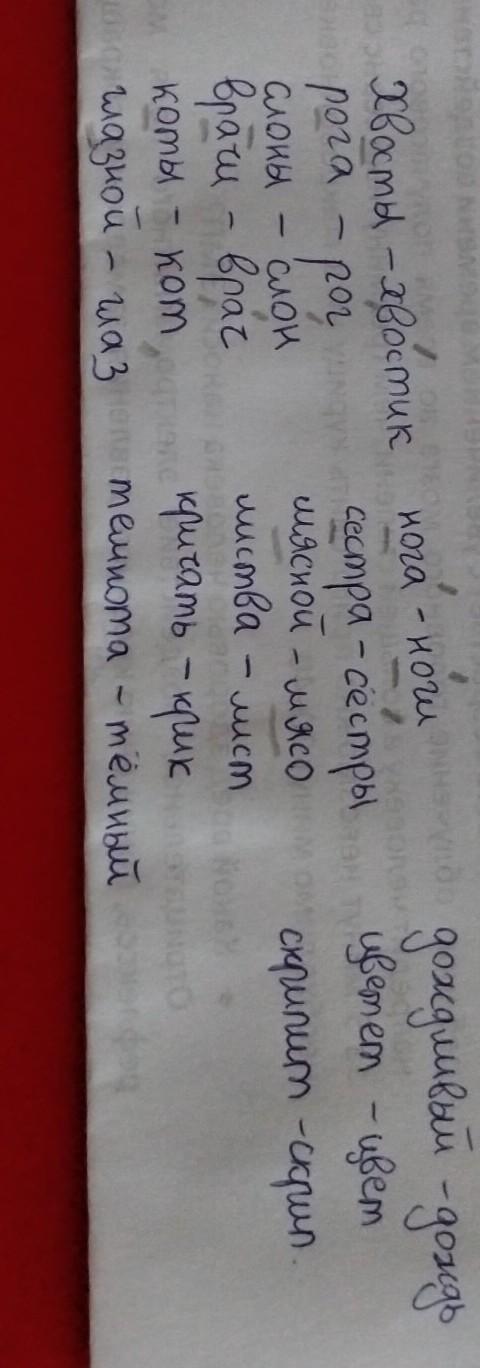 хвосты – хвостик
рога – рог
слоны – слон
врачи – врач
коты – кот
глазной – глаз
нога - ноги
сестра - сёстры
мясной - мясо
листва - лист
кричать - крик
темнота - тёмный
дождливый - дождь
цветет - цвет
скрипит - скрип.